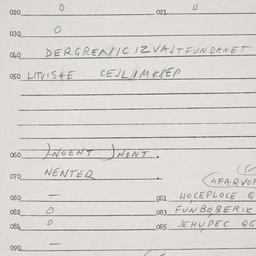 020 0 021 0
030 0
040 DERGRENCIC IZVAJTFUNDANET
050 LITVISTE CEJLIMKREP
060 INOENT INONT.
070 NENTER
(AFARVOP
080 — 081 HOCEPLOCE Q
082 0 083 FUNBOBERIK
084 0 085 JEHUPEC QG
090 —